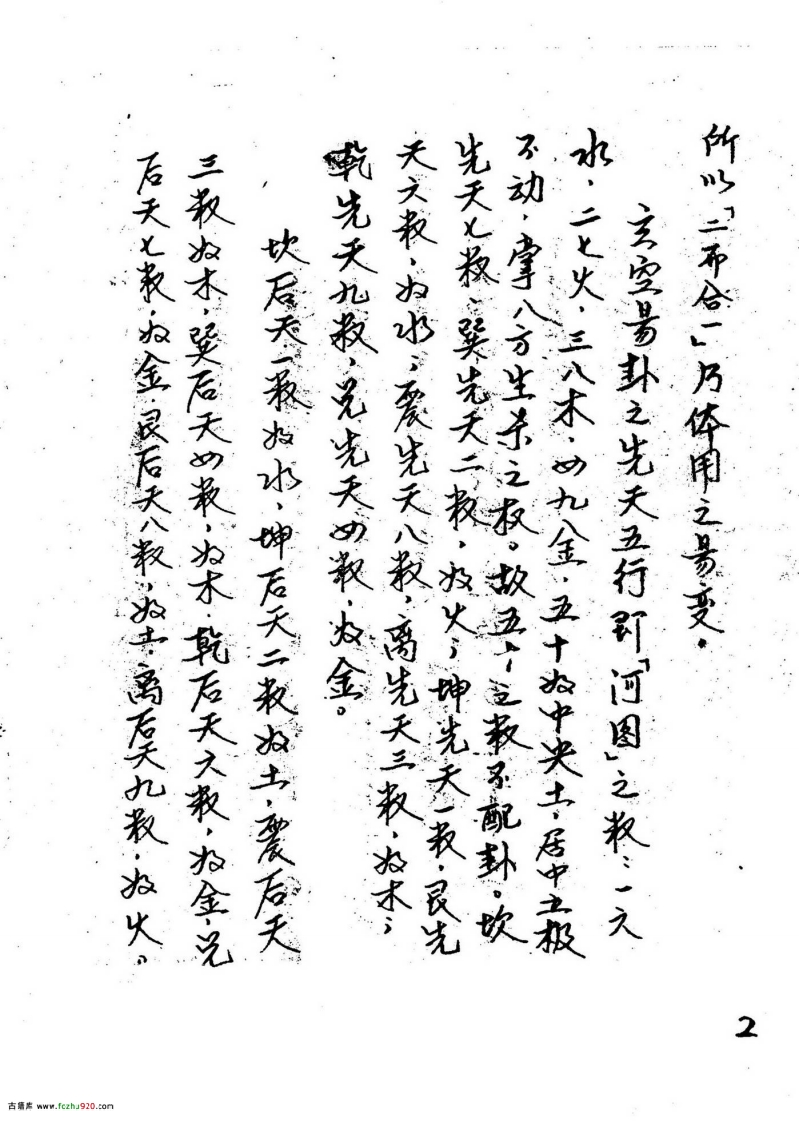 所以「二而合一」乃体用之易变。
玄空易卦之先天五行即「河图」之数：一六
水，二七火，三八木，四九金，五十为中央土，居中立极
不动，掌八方生杀之权。故五，之数不配卦。坎
先天七数，巽先天二数，为火；坤先天一数，艮先
天六数，为水；震先天八数，离先天三数，为木；
乾先天九数，兑先天四数，为金。
坎后天一数为水，坤后天二数为土，震后天
三数为木，巽后天四数，为木，乾后天六数，为金，兑
后天七数，为金，艮后天八数，为土，离后天九数，为火。
2
古籍库 www.fczhu920.com